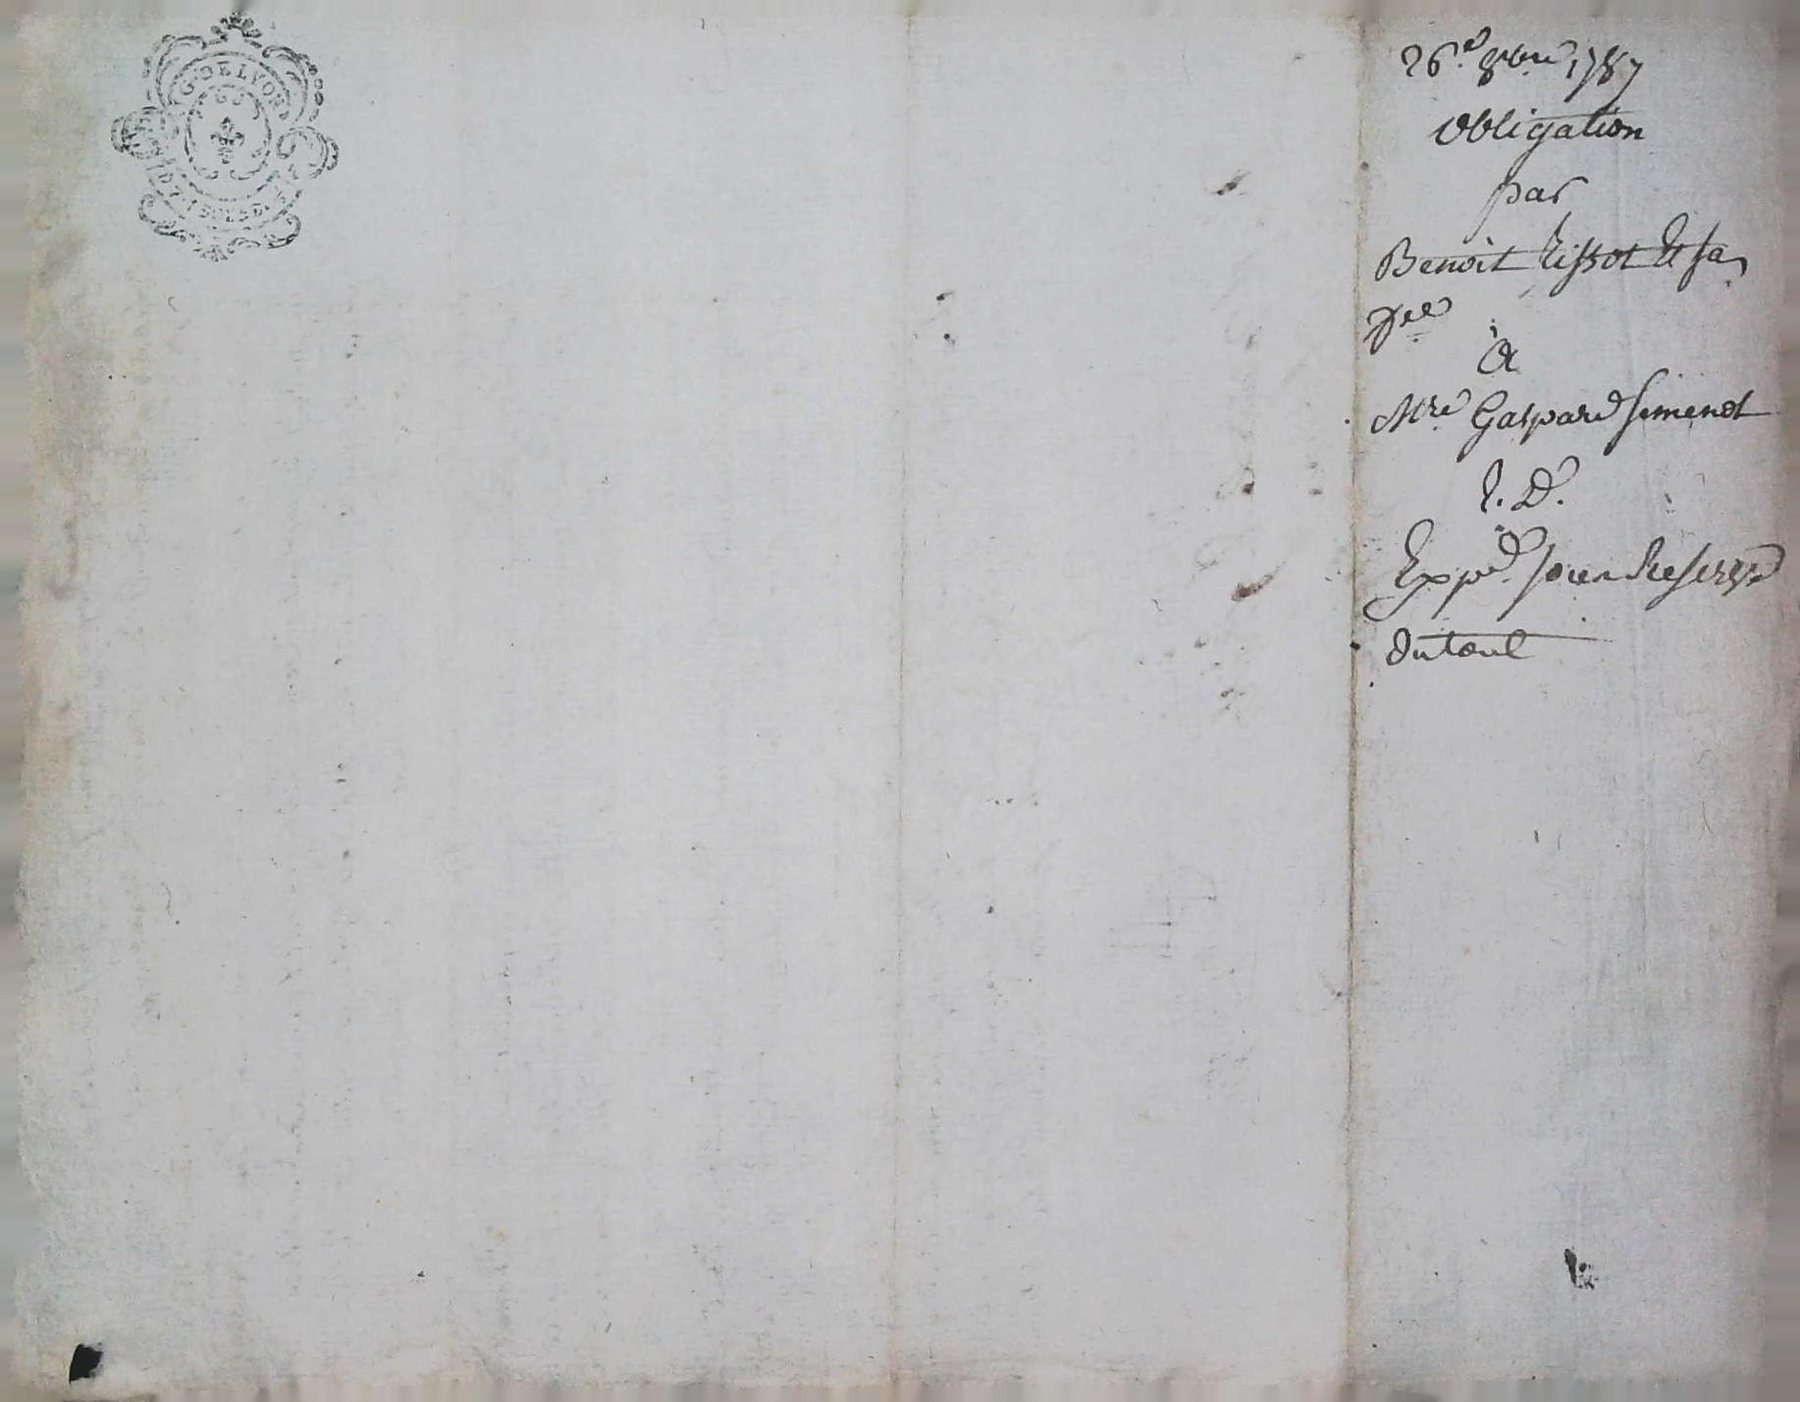 G. DE LYON
26.e 8bre 1787
Obligation
par
Benoit Tissot Et sa
fee
à
Mre Gaspard Simenot
Expd. sous Reserve